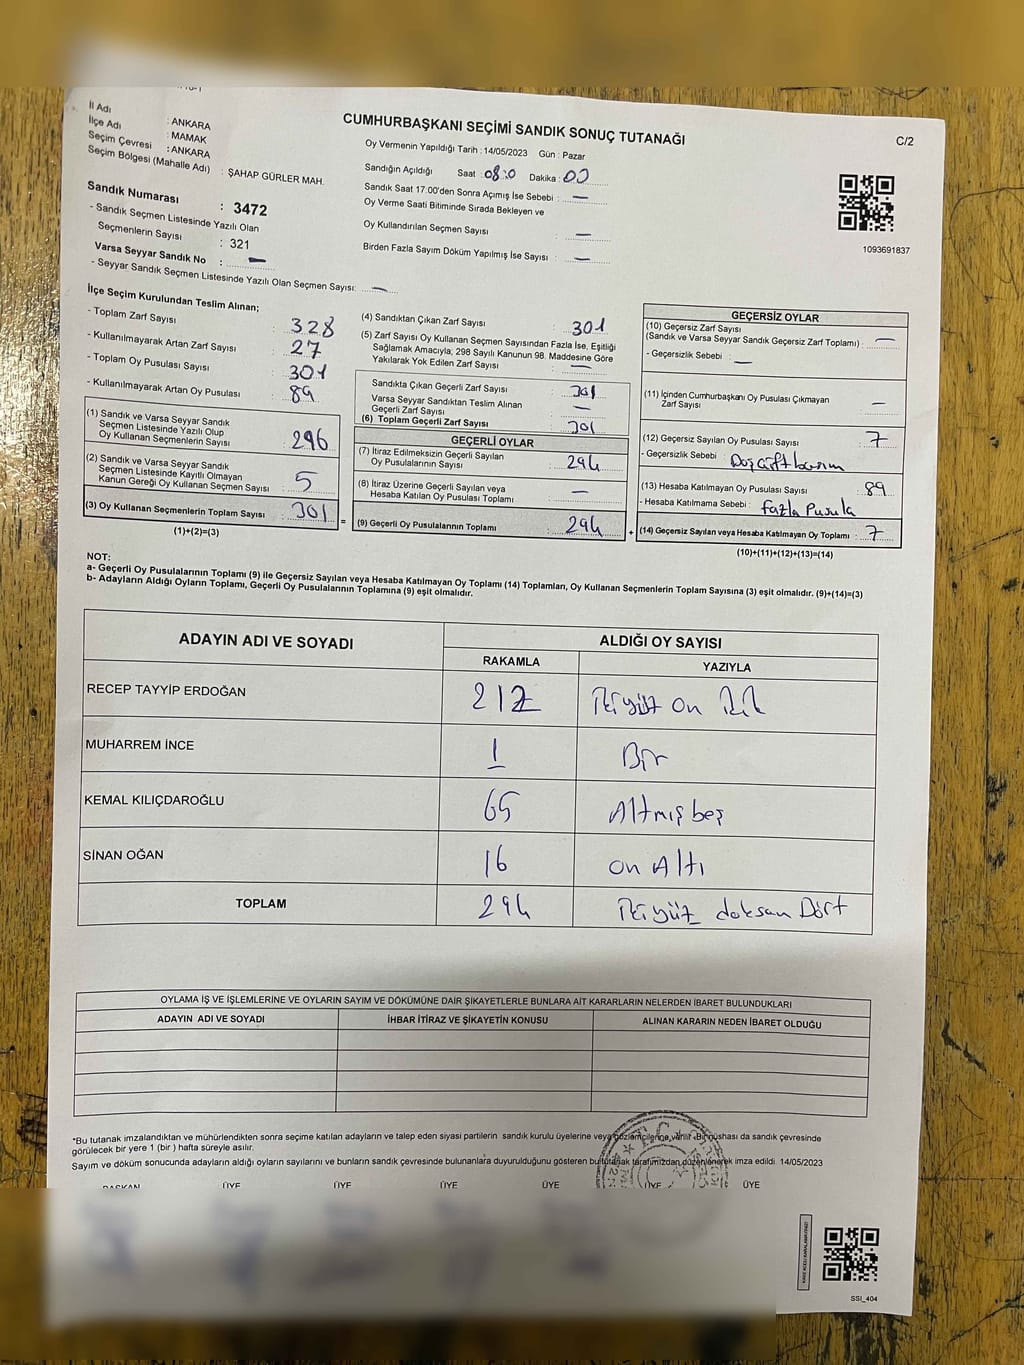 C/2
İl Adı : ANKARA
İlçe Adı : MAMAK
Seçim Çevresi : ANKARA
Seçim Bölgesi (Mahalle Adı) : ŞAHAP GÜRLER MAH.
Sandık Numarası : 3472
- Sandık Seçmen Listesinde Yazılı Olan
Seçmenlerin Sayısı : 321
Varsa Seyyar Sandık No : —
- Seyyar Sandık Seçmen Listesinde Yazılı Olan Seçmen Sayısı: —
CUMHURBAŞKANI SEÇİMİ SANDIK SONUÇ TUTANAĞI
Oy Vermenin Yapıldığı Tarih : 14/05/2023 Gün : Pazar
Sandığın Açıldığı Saat : 08:0 Dakika : 00
Sandık Saat 17:00'den Sonra Açımış İse Sebebi : —
Oy Verme Saati Bitiminde Sırada Bekleyen ve
Oy Kullandırılan Seçmen Sayısı : —
Birden Fazla Sayım Döküm Yapılmış İse Sayısı : —
1093691837
İlçe Seçim Kurulundan Teslim Alınan;
- Toplam Zarf Sayısı : 328
- Kullanılmayarak Artan Zarf Sayısı : 27
- Toplam Oy Pusulası Sayısı : 301
- Kullanılmayarak Artan Oy Pusulası : 89
(1) Sandık ve Varsa Seyyar Sandık
Seçmen Listesinde Yazılı Olup
Oy Kullanan Seçmenlerin Sayısı : 296
(2) Sandık ve Varsa Seyyar Sandık
Seçmen Listesinde Kayıtlı Olmayan
Kanun Gereği Oy Kullanan Seçmen Sayısı : 5
(3) Oy Kullanan Seçmenlerin Toplam Sayısı : 301
(1)+(2)=(3)
(4) Sandıktan Çıkan Zarf Sayısı : 301
(5) Zarf Sayısı Oy Kullanan Seçmen Sayısından Fazla İse, Eşitliği
Sağlamak Amacıyla; 298 Sayılı Kanunun 98. Maddesine Göre
Yakılarak Yok Edilen Zarf Sayısı : —
Sandıkta Çıkan Geçerli Zarf Sayısı : 301
Varsa Seyyar Sandıktan Teslim Alınan
Geçerli Zarf Sayısı : —
(6) Toplam Geçerli Zarf Sayısı : 301
GEÇERLİ OYLAR
(7) İtiraz Edilmeksizin Geçerli Sayılan
Oy Pusulalarının Sayısı : 294
(8) İtiraz Üzerine Geçerli Sayılan veya
Hesaba Katılan Oy Pusulası Toplamı : —
= (9) Geçerli Oy Pusulalarının Toplamı : 294 +
GEÇERSİZ OYLAR
(10) Geçersiz Zarf Sayısı
(Sandık ve Varsa Seyyar Sandık Geçersiz Zarf Toplamı) : —
- Geçersizlik Sebebi : —
(11) İçinden Cumhurbaşkanı Oy Pusulası Çıkmayan
Zarf Sayısı : —
(12) Geçersiz Sayılan Oy Pusulası Sayısı : 7
- Geçersizlik Sebebi :
(13) Hesaba Katılmayan Oy Pusulası Sayısı : 89
- Hesaba Katılmama Sebebi : fazla Pusula
(14) Geçersiz Sayılan veya Hesaba Katılmayan Oy Toplamı : 7
(10)+(11)+(12)+(13)=(14)
NOT:
a- Geçerli Oy Pusulalarının Toplamı (9) ile Geçersiz Sayılan veya Hesaba Katılmayan Oy Toplamı (14) Toplamları, Oy Kullanan Seçmenlerin Toplam Sayısına (3) eşit olmalıdır. (9)+(14)=(3)
b- Adayların Aldığı Oyların Toplamı, Geçerli Oy Pusulalarının Toplamına (9) eşit olmalıdır.
ADAYIN ADI VE SOYADI ALDIĞI OY SAYISI
RAKAMLA YAZIYLA
RECEP TAYYİP ERDOĞAN 212 ikiyüz on iki
MUHARREM İNCE 1 Bir
KEMAL KILIÇDAROĞLU 65 Altmış beş
SİNAN OĞAN 16 on Altı
TOPLAM 294 ikiyüz doksan Dört
OYLAMA İŞ VE İŞLEMLERİNE VE OYLARIN SAYIM VE DÖKÜMÜNE DAİR ŞİKAYETLERLE BUNLARA AİT KARARLARIN NELERDEN İBARET BULUNDUKLARI
ADAYIN ADI VE SOYADI İHBAR İTİRAZ VE ŞİKAYETİN KONUSU ALINAN KARARIN NEDEN İBARET OLDUĞU
*Bu tutanak imzalandıktan ve mühürlendikten sonra seçime katılan adayların ve talep eden siyasi partilerin sandık kurulu üyelerine veya gözlemcilerine verilir. Bir nüshası da sandık çevresinde
görülecek bir yere 1 (bir ) hafta süreyle asılır.
Sayım ve döküm sonucunda adayların aldığı oyların sayılarını ve bunların sandık çevresinde bulunanlara duyurulduğunu gösteren bu tutanak tarafımızdan düzenlenerek imza edildi 14/05/2023
BAŞKAN ÜYE ÜYE ÜYE ÜYE ÜYE ÜYE
SSI_404